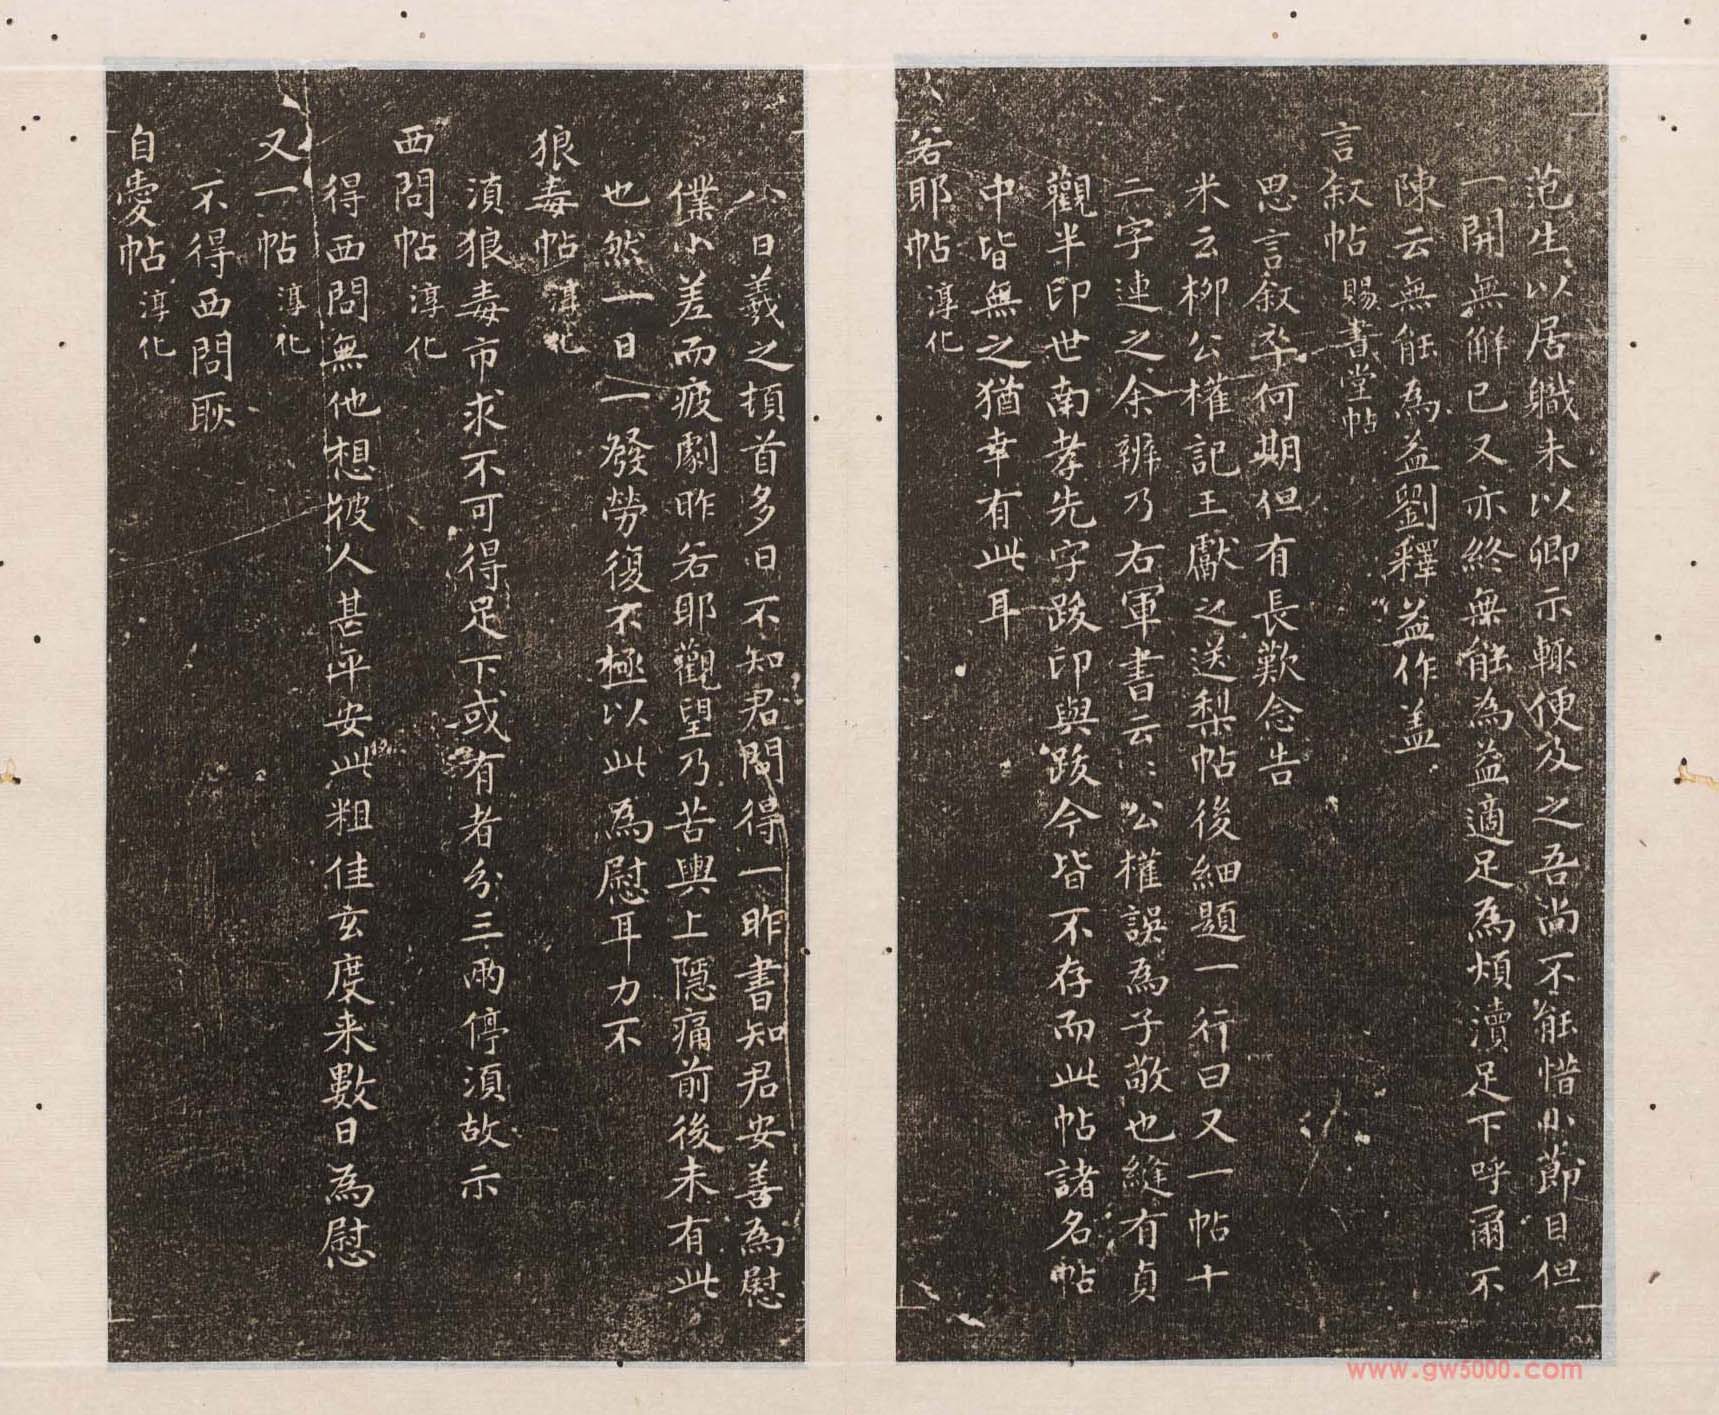 范生以居職未以卿示輒便及之吾尚不能惜小節目但
一開無解已又亦終無能為益適足為煩瀆足下呼爾不
陳云無能為益劉釋益作盖
言叙帖 賜書堂帖
思言叙卒何期但有長歎念告
米云柳公權記王獻之送梨帖後細題一行曰又一帖十
二字連之余辨乃右軍書云云公權誤為子敬也縫有貞
觀半印世南孝先字跋印與跋今皆不存而此帖諸名帖
中皆無之猶幸有此耳
若耶帖 淳化
八日羲之頓首多日不知君問得一昨書知君安善為慰
僕小差而疲劇昨若耶觀望乃苦輿上隱痛前後未有此
也然一日一發勞復不極以此為慰耳力不
狼毒帖 淳化
湏狼毒市求不可得足下或有者分三兩停湏故示
西問帖 淳化
得西問無他想彼人甚平安此粗佳玄度来數日為慰
又一帖 淳化
不得西問耿
自愛帖 淳化
www.gw5000.com